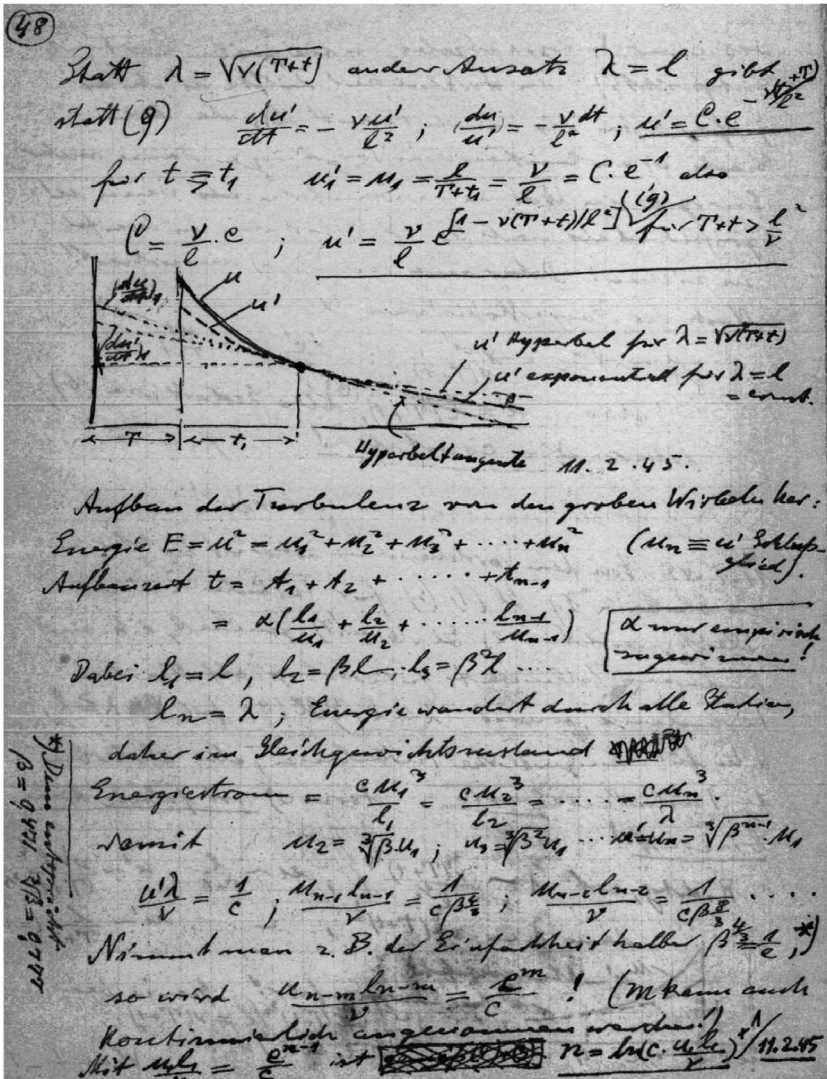 48
Statt λ = √ν(T+t) anderer Ansatz λ = l gibt
statt (9) du'/dt = - νu'/l² ; du'/u' = - ν/l² dt ; u' = C·e^{-ν(t+T)/l²}
für t ≧ t₁ u' = u₁ = l/(T+t₁) = ν/l = C·e⁻¹ also
C = ν/l · e ; u' = ν/l e^{[1 - ν(T+t)/l²]} (9') für T+t > l²/ν
(du/dt)₁
u
u'
(du'/dt)₁
u' Hyperbel für λ = √ν(T+t)
u' exponentiell für λ = l
= const.
T
t₁
Hyperbeltangente 11.2.45.
Aufbau der Turbulenz von den groben Wirbeln her:
Energie E = u² = u₁² + u₂² + u₃² + ····· + uₙ² (uₙ ≡ u' Schluß-
glied).
Aufbauzeit t = t₁ + t₂ + ······ + tₙ₋₁
= α(l₁/u₁ + l₂/u₂ + ······ lₙ₋₁/uₙ₋₁)
α nur empirisch
zu gewinnen!
Dabei l₁ = l, l₂ = βl, l₃ = β²l ...
lₙ = λ ; Energie wandert durch alle Stadien,
daher im Gleichgewichtszustand
Energiestrom = cu₁³/l₁ = cu₂³/l₂ = ····· = cuₙ³/λ.
damit u₂ = ∛β·u₁ ; u₃ = ∛β² u₁ ··· u' = uₙ = ∛βⁿ⁻¹·u₁
u'λ/ν = 1/c ; uₙ₋₁lₙ₋₁/ν = 1/(cβ^{4/3}) ; uₙ₋₂lₙ₋₂/ν = 1/(cβ^{8/3}) ·····
Nimmt man z.B. der Einfachheit halber β^{4/3} = 1/e, *)
so wird uₙ₋ₘlₙ₋ₘ/ν = eᵐ/c ! (m kann auch
kontinuierlich angenommen werden!)
Mit u₁l₁/ν = eⁿ⁻¹/c ist n = ln(c·u₁l₁/ν) + 1 / 11.2.45
*) Dem entspricht
β = 0,471 ∛β = 0,777